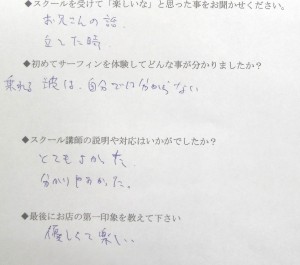 ◆スクールを受けて「楽しいな」と思った事をお聞かせください。
お兄さんの話.
立てた時
◆初めてサーフィンを体験してどんな事が分かりましたか?
乗れる波は、自分では分からない
◆スクール講師の説明や対応はいかがでしたか?
とてもよかった.
分かりやすかった。
◆最後にお店の第一印象を教えて下さい
優しくて楽しい